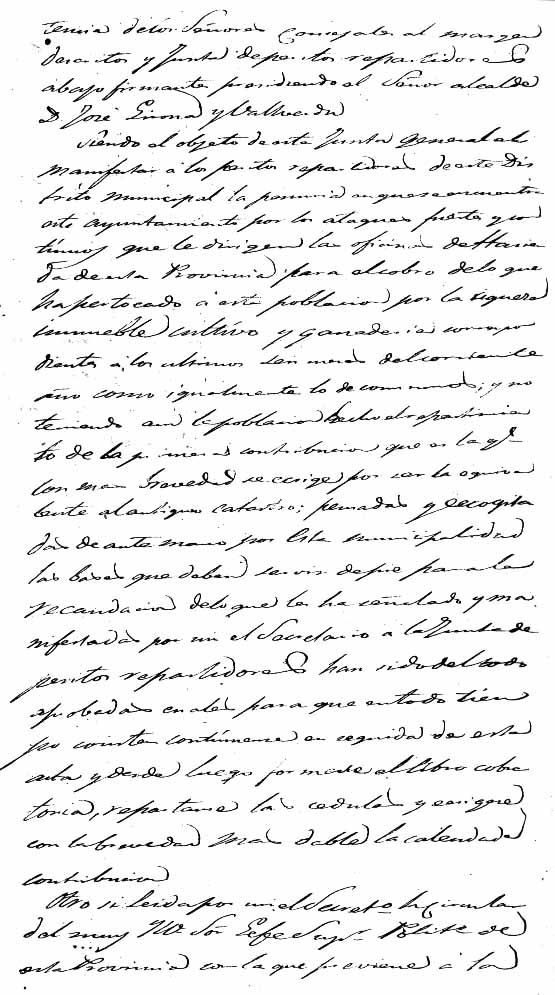 tencia de los Señores Consejales al margen
descritos y Junta de peritos repartidores
abajo firmantes presidiendo el Señor alcalde
D. José Girona y Vallverdu
Siendo el objeto de esta Junta General el
manifestar a los peritos repartidores de este Dis
trito municipal la penuria en que se encuentra
este ayuntamiento por los ataques fuertes y con
tinuos que le dirigen las oficinas de Hacien
da de esta Provincia para el cobro de lo que
ha pertocado a esta poblacion por la riquera
inmueble cultivo y ganaderia correspon
dientes a los ultimos seis meses del corriente
año como igualmente lo de consumos; y no
teniendo aun la poblacion hecho el repartimien
to de la primera contribucion que es la qe.
con mas gravedad se exige por ser la equiva
lente al antiguo catastro; pensadas y escogita
das de ante mano por esta municipalidad
las bases que deban servir de pie para la
recaudacion de lo que les ha señalado y ma
nifestadas por mi el Secretario a la Junta de
peritos repartidores han sido del todo
aprobadas cuales para que en todo tiem
po consten continuense en seguida de esta
acta y desde luego formese el libro cobra
torio, repartanse las cedulas y exigese
con la brevedad mas dable la calendada
contribucion
Otro si leida por mi el Secreto. la circular
del muy Ille. Sor. Gefe Supr. Politco. de
esta Provincia con la que previene a los